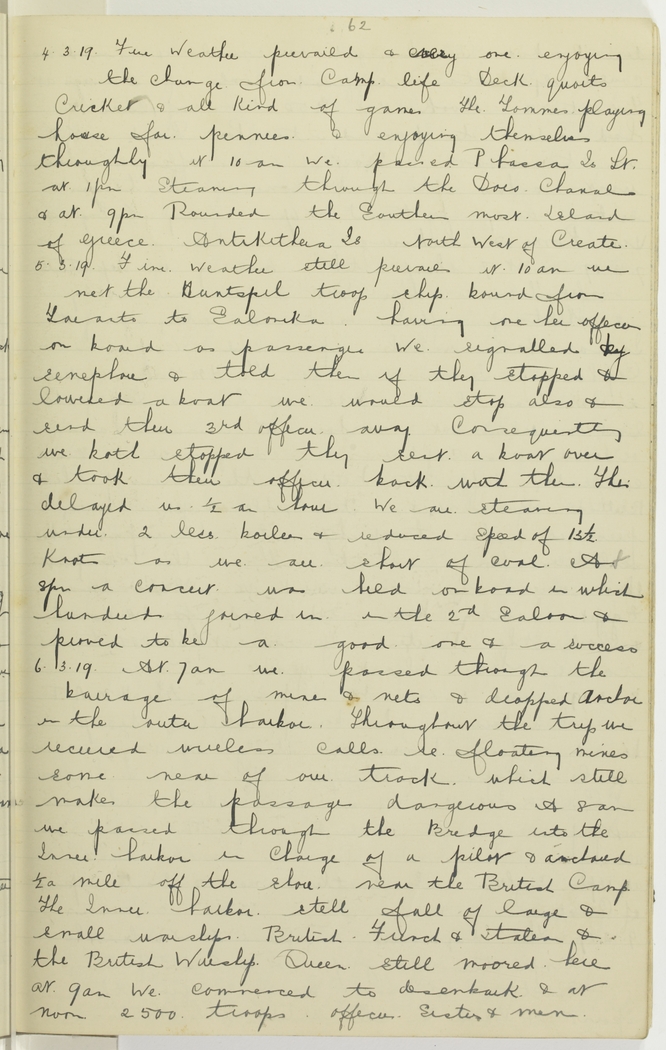 62
4.3.19. Fine Weather prevaild & every one enjoying
the change from Camp life Deck quoits
Cricket & all kind of games The Tommies playing
house for pennies & enjoying themselves
throughly at 10 am We passed Is Lt.
at 1pm Steaming through the Doro Chanal
& at 9pm Rounded the Southern most Island
of Greece. Antikithera Is North West of Create.
5.3.19. Fine Weather still prevails at 10 am we
met the Huntspil troop ship bound from
to Salonika. having one her officers
on board as passenger We signalled by
semephore & told them if they stopped &
lowered a boat we would stop also &
send their 3rd officer away Consequently
we both stopped they sent a boat over
& took their officer back with them. This
delayed us ½ an hour We are steaming
under 2 less boilers & reduced speed of 13½
Knots as we are short of coal. At
8pm a concert was held on board in which
hundreds joined in in the 2nd Saloon &
proved to be a good one & a success
6.3.19. At 7am we passed through the
barrage of mines & nets & dropped anchor
in the outer harbor. Throughout the trip we
received wireless calls re floating mines
some near of our track which still
makes the passage dangerous At 8 am
we passed through the Bredge into the
Inner harbor in Charge of a pilot & anchored
½ a mile off the shore near the British Camp
The Inner harbor still full of large &
small warships British French & Italian &
the British Warship Queen still moored here
at 9am We commenced to disenbark & at
noon 2500 troops officers Sisters & men.